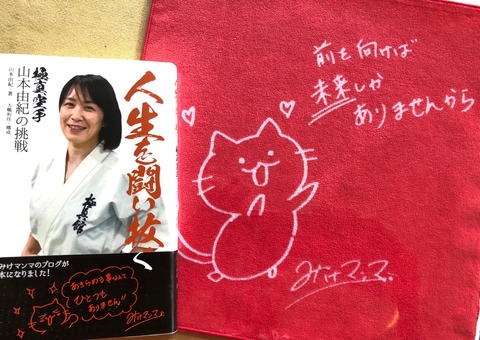 人生を闘い抜く
極真空手
山本由紀の挑戦
山本由紀 著 構成
極真館
みけマンマのブログが
本になりました!
あきらめる事なんて
ひとつも
ありません!!
みけマンマ
前を向けば
未来しか
ありませんから
みけマンマ